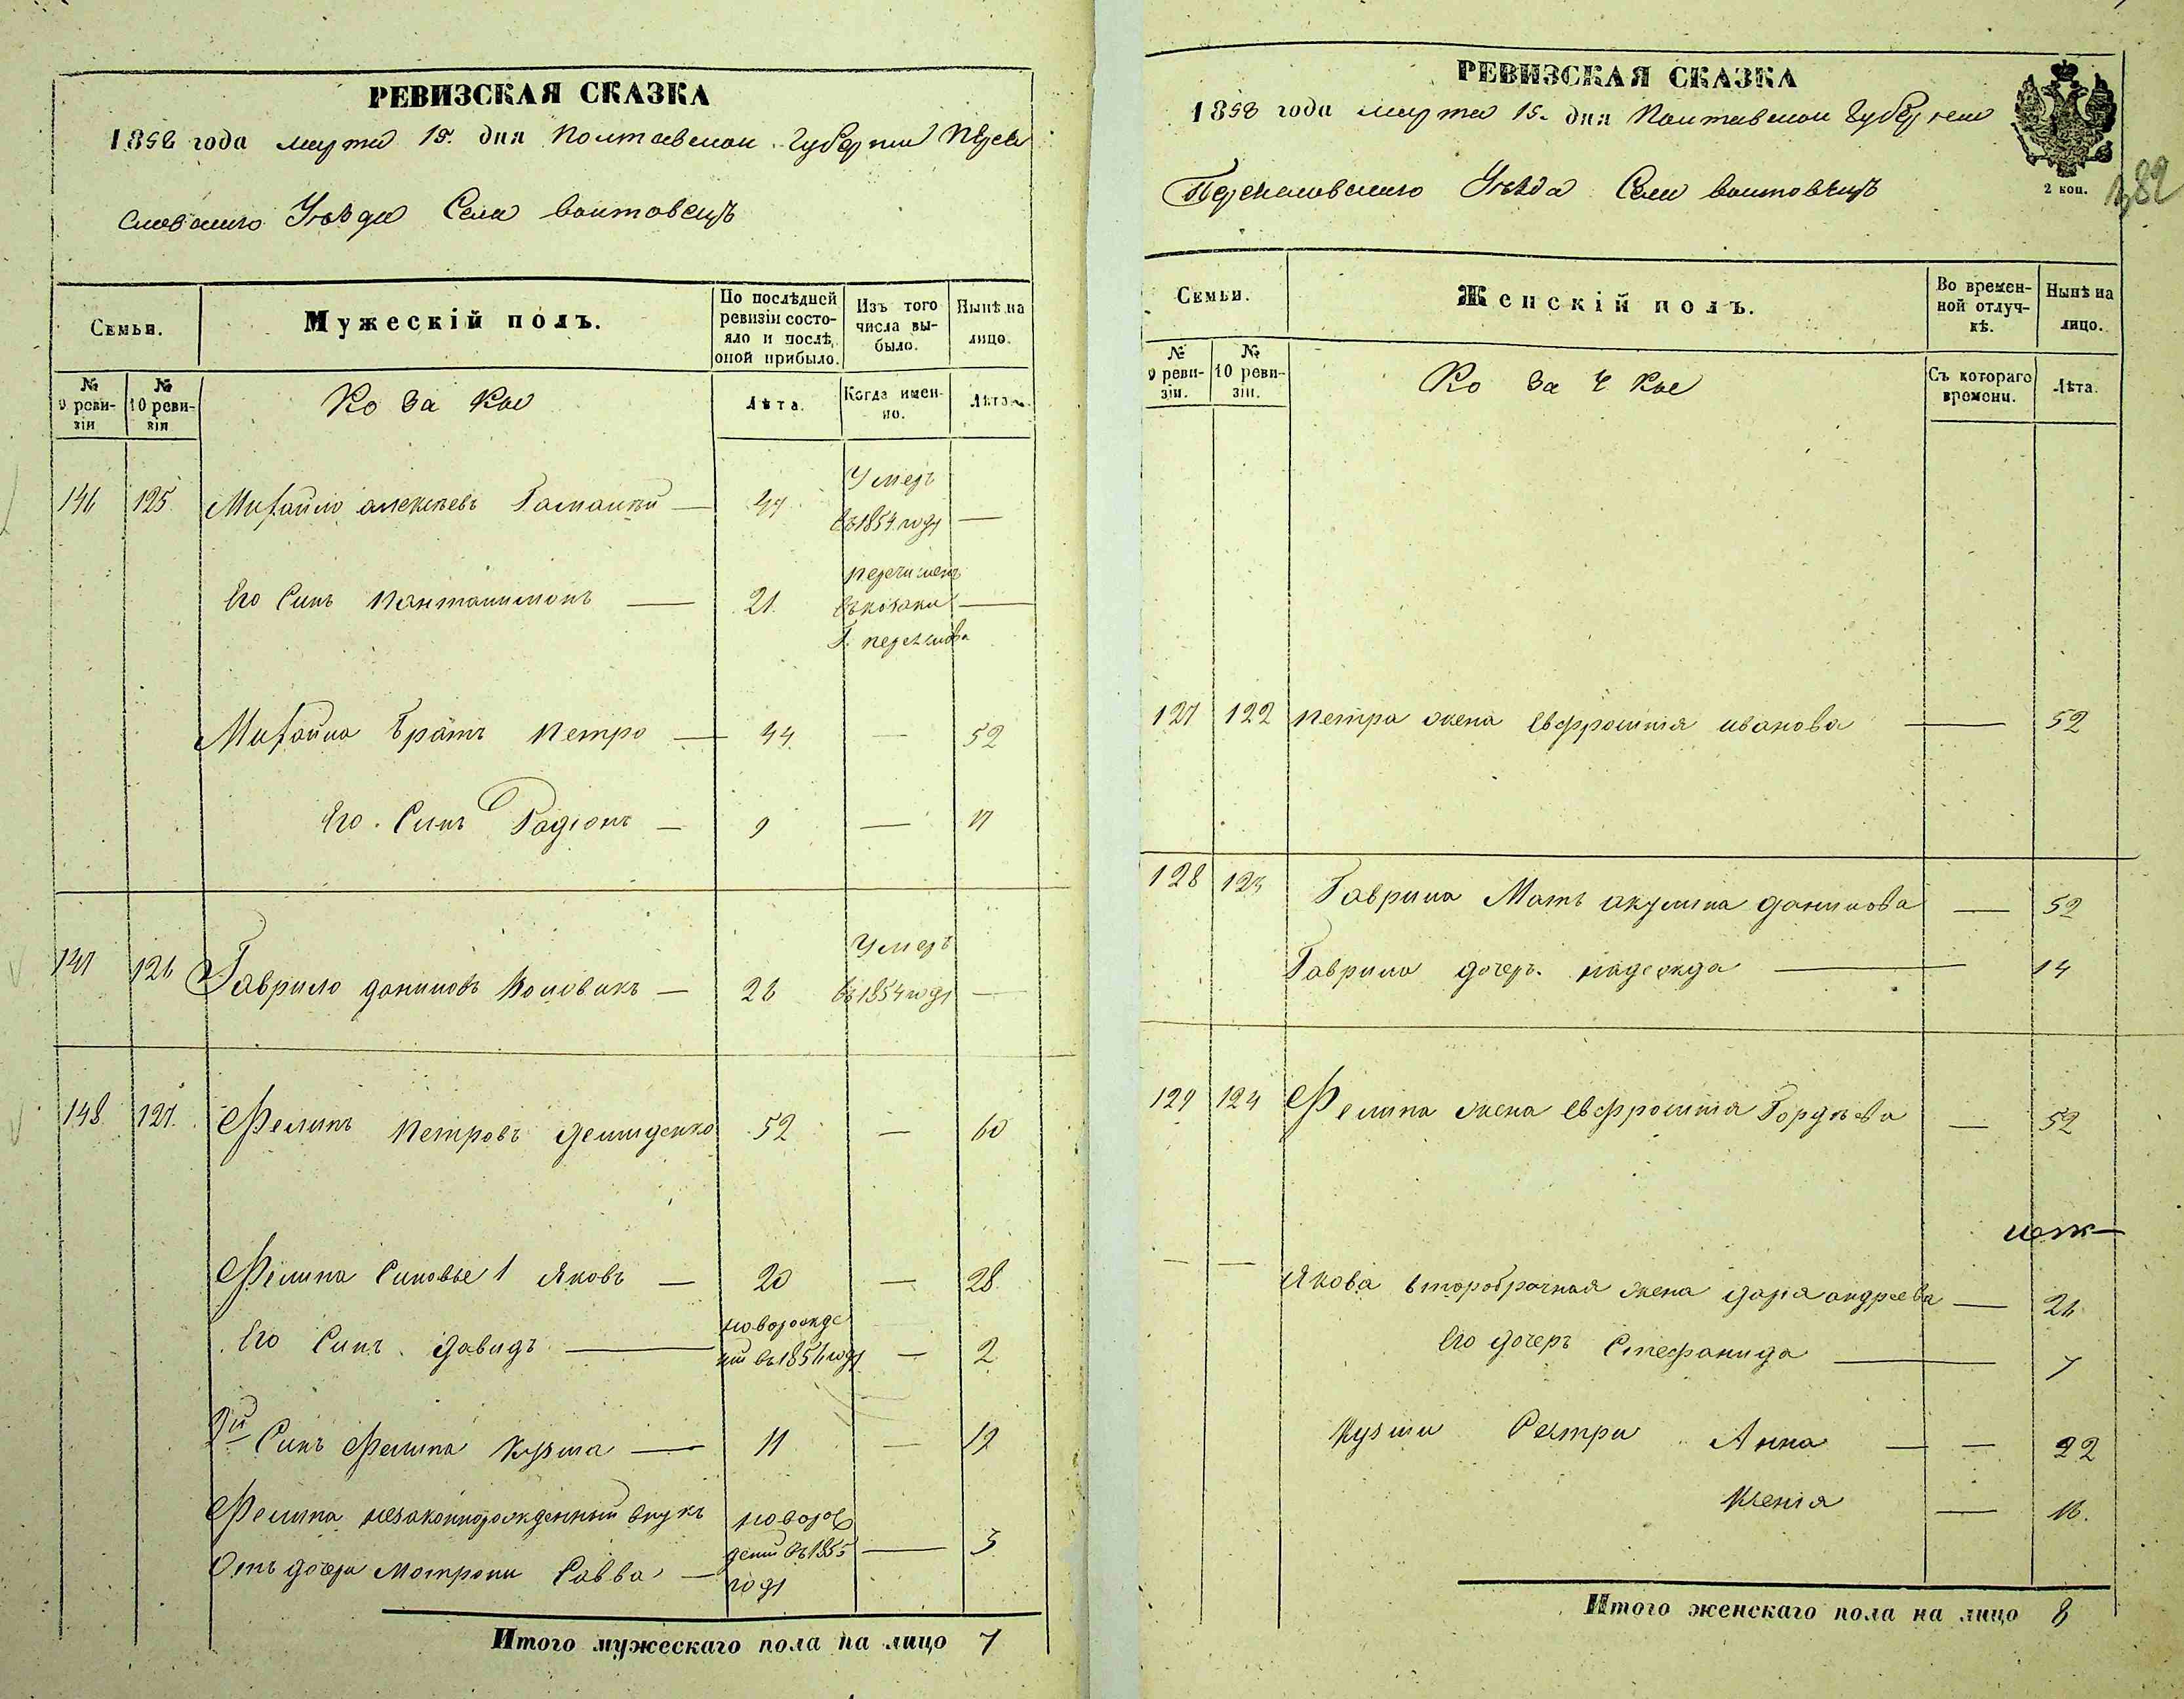 РЕВИЗСКАЯ СКАЗКА
1858 года марта 15. дня Полтавской Губернии Перея
славского Уѣзда Села Воитовецъ
Семьи.
Мужескій полъ.
По послѣдней ревизіи состояло и послѣ оной прибыло.
Изъ того числа выбыло.
Нынѣ на лицо.
№ 9 ревизіи
№ 10 ревизіи
Козаки
Лѣта.
Когда именно.
Лѣта.
146 125 Михайло Алексѣевъ — 47 Умеръ въ 1854 году —
Его Синъ Пантилимонъ — 21. перечисленъ въ козаки Г. Переяслова —
Михайла Братъ Петро — 44. — 52
Его Синъ Радіонъ — 9 — 17
147 126 Гаврило Даниловъ — 28 Умеръ въ 1854 году —
148 127. Филипъ Петровъ Демиденко 52 — 60
Филипа Синовье 1 Яковъ — 20 — 28.
Его Синъ Давидъ — новорожденій въ 1856 году — 2
2й Синъ Филипа Кузма — 11 — 19
Филипа незаконнорожденный внукъ
Отъ дочери Мотрони Савва — новорожденій въ 1855 году — 3
Итого мужескаго пола на лицо 7
РЕВИЗСКАЯ СКАЗКА
1858 года марта 15. дня Полтавской Губернии
Переяславского Уѣзда Села Воитовецъ
2 коп.
382
Семьи.
Женскій полъ.
Во временной отлучкѣ.
Нынѣ на лицо.
№ 9 ревизіи.
№ 10 ревизіи.
Козачки
Съ котораго времени.
Лѣта.
127 122 Петра жена Евфросинія Иванова — 52
128 123 Гаврила Мать Акулина Данилова — 52
Гаврила дочерь Надежда — 14
129 124 Филипа жена Евфросинія Гордѣева — 52
— — Якова второбрачная жена Дарія Андреева — 26
Его дочерь Стефанида — 7
Кузми Сестри Анна — — 22
Ксенія — 16.
Итого женскаго пола на лицо 8